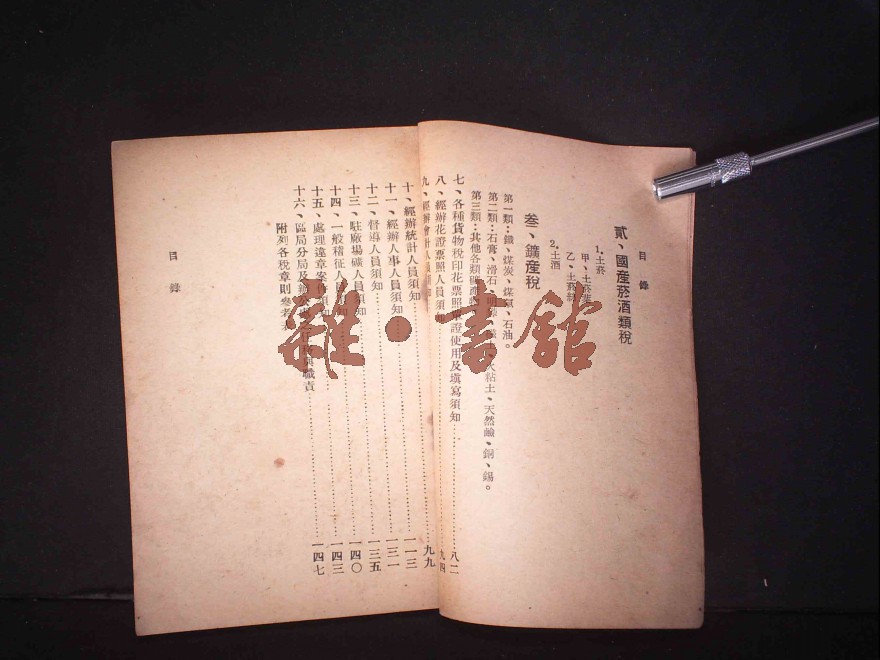 目錄
貳、國產菸酒類稅
1.土菸
甲、土菸葉
乙、土菸絲
2.土酒
叁、鑛產稅
第一類：鐵、煤炭、煤氣、石油。
第二類：石膏、滑石、火粘土、天然鹼、銅、錫。
第三類：其他各類
七、各種貨物稅印花票照單證使用及塡寫須知 八二
八、經辦花證票照人員須知 九四
九、經辦會計人員須知 九九
十、經辦統計人員須知 一一三
十一、經辦人事人員須知 一三一
十二、督導人員須知 一三五
十三、駐廠場礦人員須知 一四〇
十四、一般稽征人員須知 一四三
十五、處理違章案件須知 一四七
十六、區局分局及辦公 職責
附列各稅章則參考
目錄
雜・書館